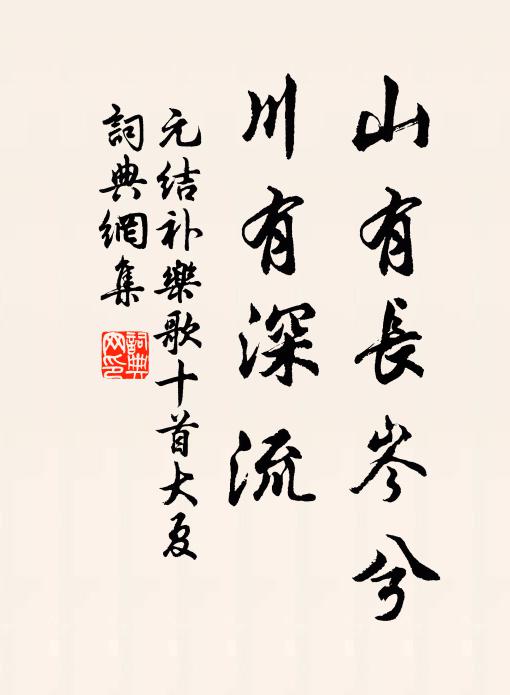 山有長岑兮
川有深流
元结补樂歌十首大夏
詞典網集
詞典網印